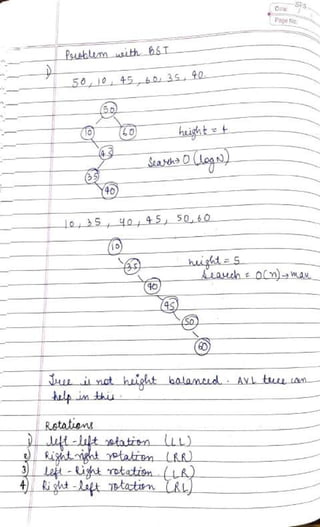 Date
Page No.
Problem with BST
1)
50, 10, 45, 60, 35, 40
50
10 60
45
35
40
height = 4
Search → O(logN)
10, 35, 40, 45, 50, 60
10
35
40
45
50
60
height = 5
Search = O(n) → max
Tree is not height balanced. AVL tree can
help in this.
Rotations
1) left-left rotation (LL)
2) Right right rotation (RR)
3) left-Right rotation (LR)
4) Right-left rotation (RL)